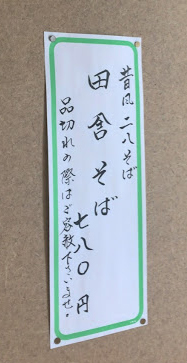 昔風 二八そば
田舎そば
七八〇円
品切れの際はご容赦下さいませ。